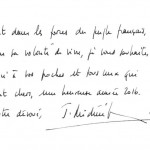 et dans la force du peuple français,
sa volonté de vivre, je vous souhaite,
à vos proches et tous ceux qui
sont chers, une heureuse année 2016.
dévoué,